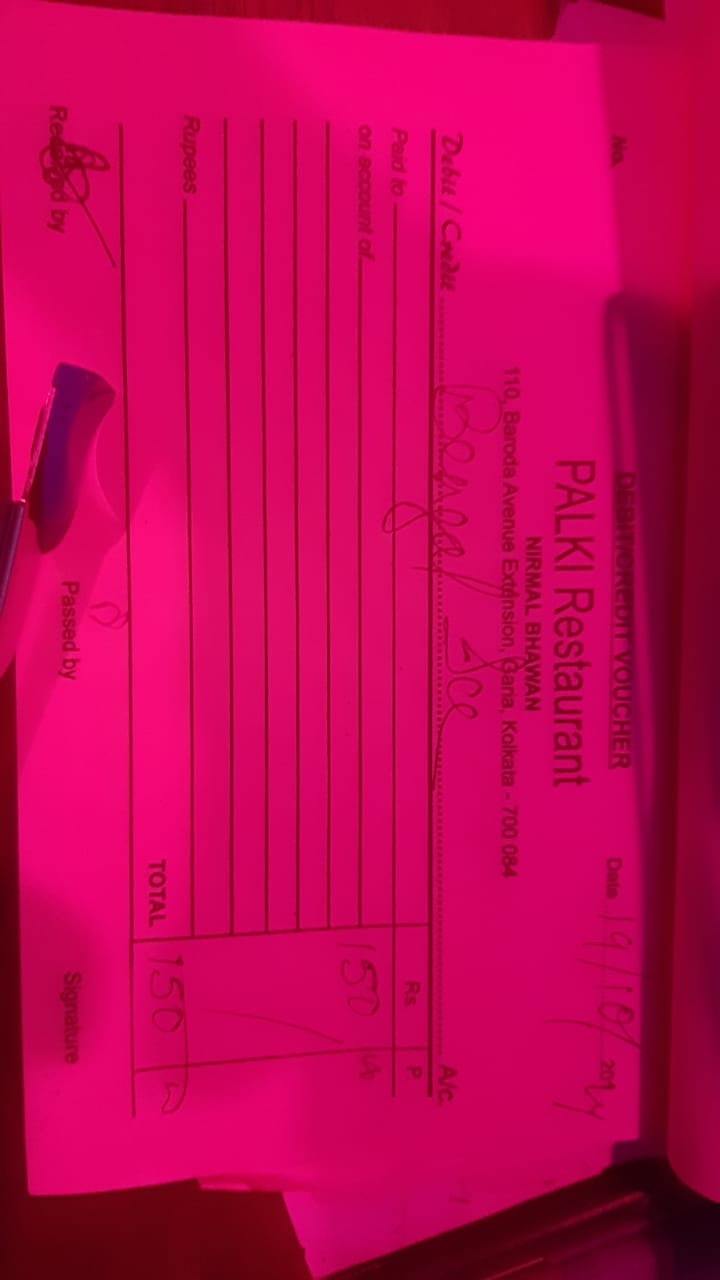 DEBIT/CREDIT VOUCHER
No. Date 19/10/2024
PALKI Restaurant
NIRMAL BHAWAN
110, Baroda Avenue Extension, Garia, Kolkata - 700 084
Debit / Credit Bengal Ice A/c.
Rs. P
Paid to
on account of 150
Rupees
TOTAL 150
Received by Passed by Signature